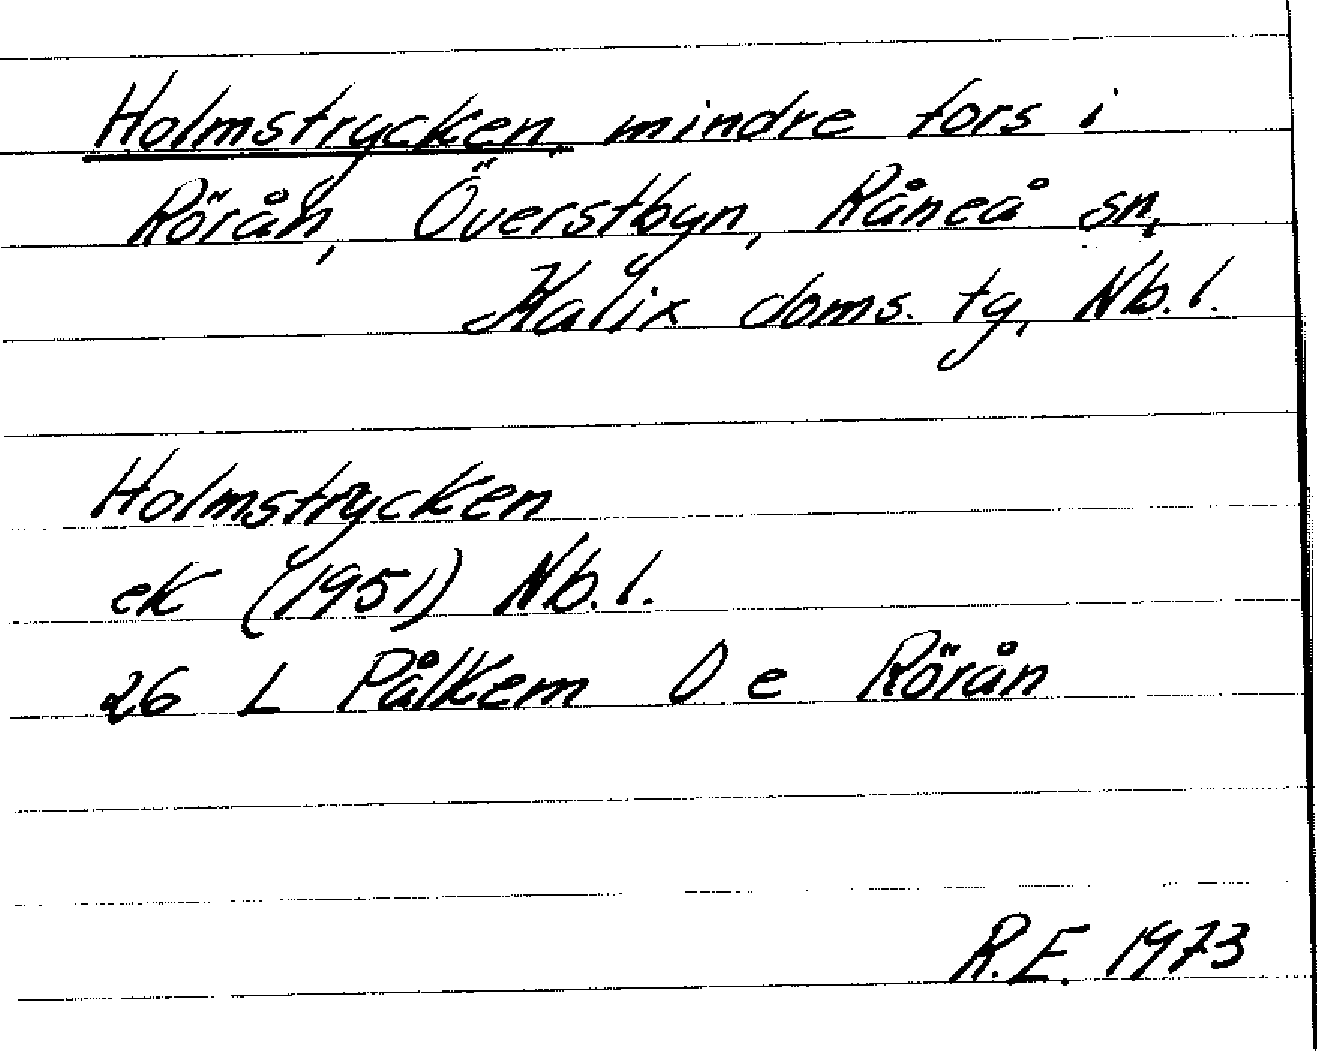 Holmstrycken, mindre fors i
Rörån, Överstbyn, Råneå sn,
Kalix doms. tg, Nb. l.
Holmstrycken
ek (1951) Nb. l.
26 L Pålkem O e Rörån
R.E. 1973